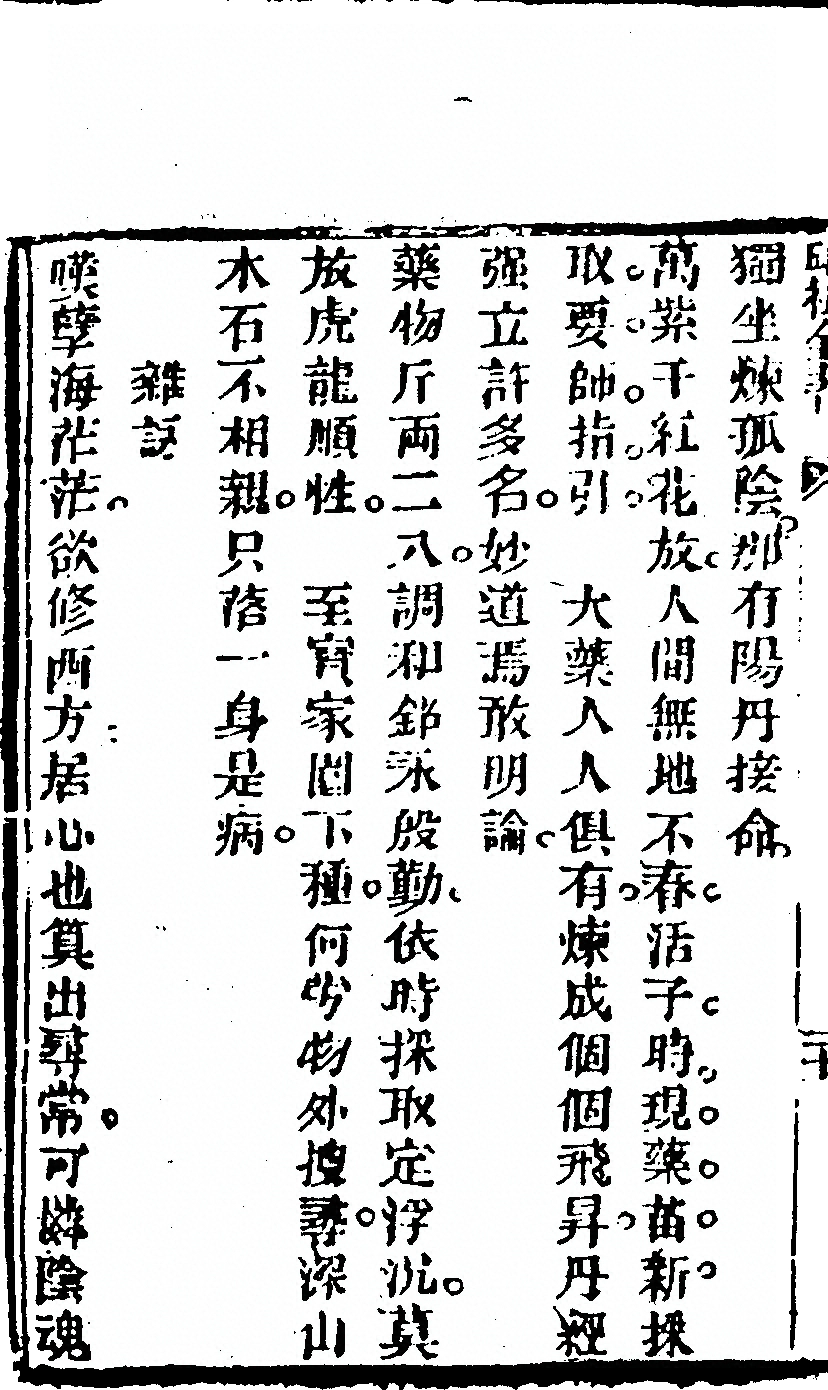 獨坐煉孤陰那有陽丹接命
萬紫千紅花放人間無地不春活子時現藥苗新採
取要師指引　大藥人人俱有煉成個個飛昇丹經
强立許多名妙道焉敢明論
藥物斤兩二八調和鉛汞殷勤依時採取定浮沉莫
放虎龍順性　至寶家園下種何勞物外搜尋深山
木石不相親只落一身是病
雜詠
嘆孽海茫茫欲修西方居心也算出尋常可憐陰魂